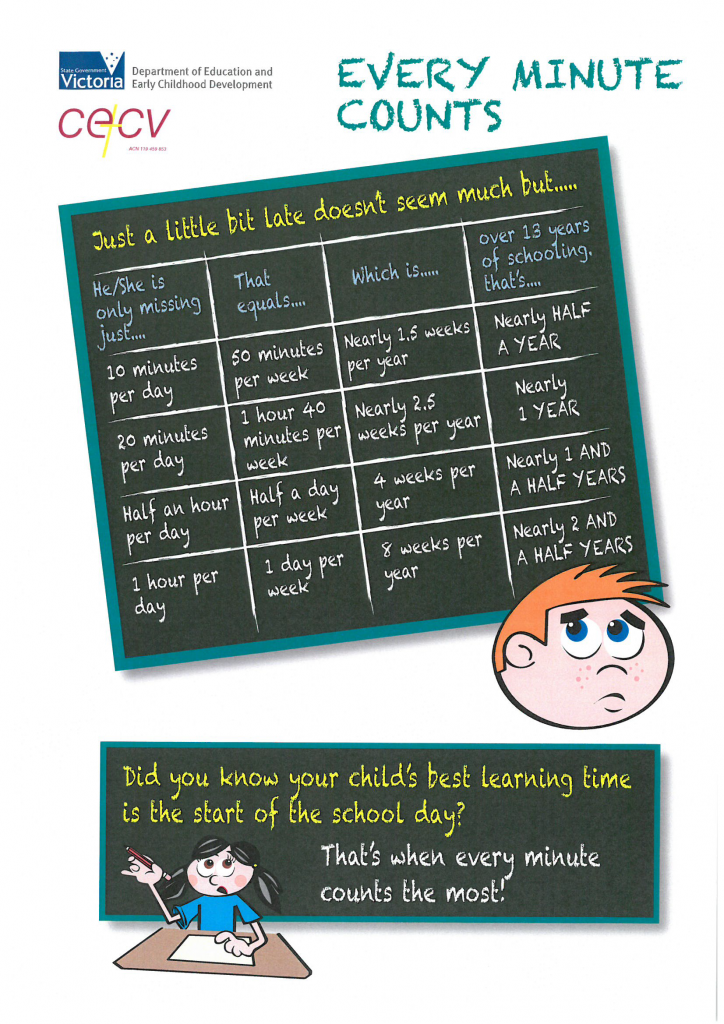 State Government
Victoria
Department of Education and
Early Childhood Development
cecv
ACN 119 459 853
EVERY MINUTE
COUNTS
Just a little bit late doesn't seem much but.....
He/She is
only missing
just....
That
equals....
Which is.....
over 13 years
of schooling,
that's....
10 minutes
per day
50 minutes
per week
Nearly 1.5 weeks
per year
Nearly HALF
A YEAR
20 minutes
per day
1 hour 40
minutes per
week
Nearly 2.5
weeks per year
Nearly
1 YEAR
Half an hour
per day
Half a day
per week
4 weeks per
year
Nearly 1 AND
A HALF YEARS
1 hour per
day
1 day per
week
8 weeks per
year
Nearly 2 AND
A HALF YEARS
Did you know your child's best learning time
is the start of the school day?
That's when every minute
counts the most!